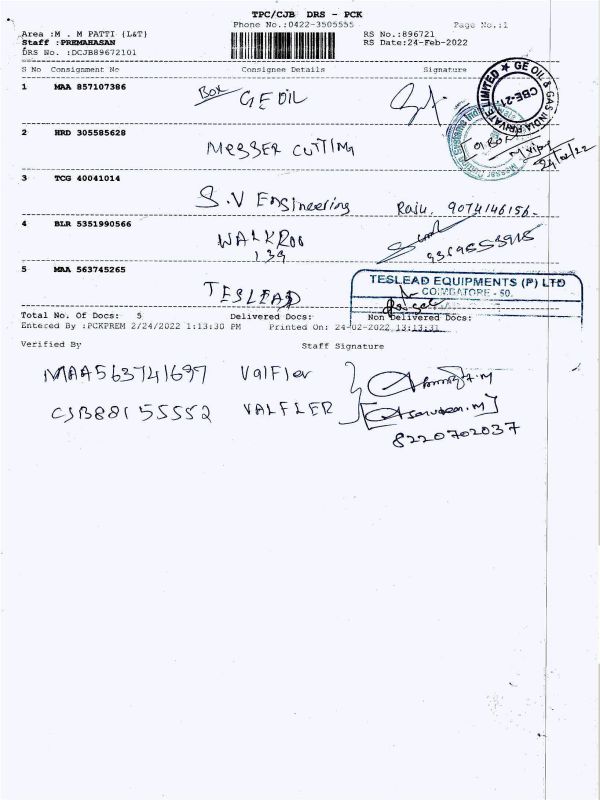 TPC/CJB DRS - PCK
Phone No.:0422-3505555 Page No.:1
Area :M . M PATTI (L&T) RS No.:896721
Staff :PREMAHASAN RS Date:24-Feb-2022
DRS No. :DCJB89672101
S No Consignment No Consignee Details Signature
1 MAA 857107386 Box GE OIL
GE OIL & GAS INDIA PRIVATE LIMITED
CBE-21.
2 HRD 305585628 MESSER CUTTING
24/02/22
3 TCG 40041014 S.V Engineering Raju. 9074146156-
4 BLR 5351990566 WALKROO
139
5 MAA 563745265 TESLEAD
TESLEAD EQUIPMENTS (P) LTD
COIMBATORE - 50.
Total No. Of Docs: 5 Delivered Docs: Non Delivered Docs:
Entered By :PCKPREM 2/24/2022 1:13:30 PM Printed On: 24-02-2022 13:13:31
Verified By Staff Signature
MAA563741697 Valfler
CJB88155552 VALFLER
8220702037